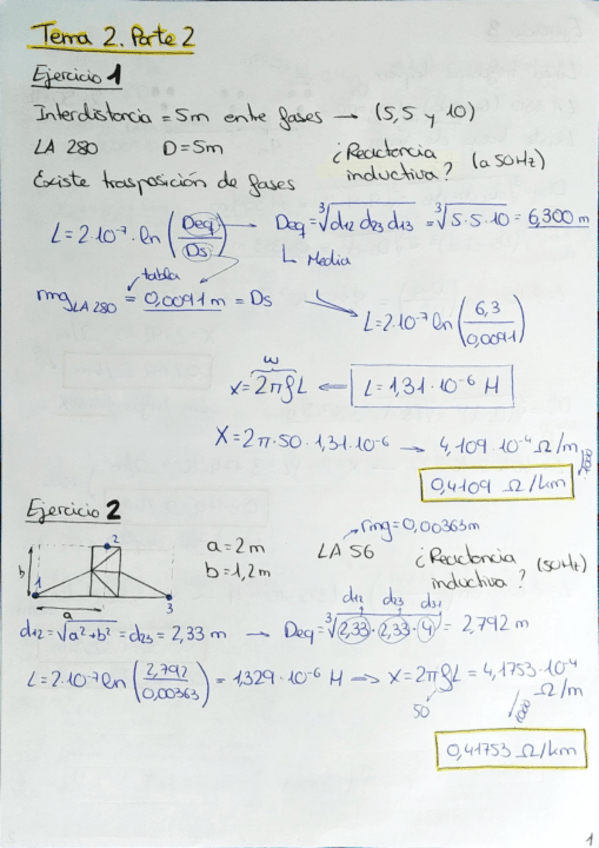 Tema 2. Parte 2
Ejercicio 1
Interdistancia = 5m entre fases → (5, 5 y 10)
LA 280 D = 5m ¿Reactancia inductiva? (a 50Hz)
Existe trasposición de fases
L = 2·10⁻⁷ · ln (Deq / Ds) → Deq = ∛(d12 d23 d13) = ∛(5·5·10) = 6,300 m
Media
tabla
rmg LA 280 = 0,0091m = Ds
L = 2·10⁻⁷ ln (6,3 / 0,0091)
ω
X = 2πfL ⇐ L = 1,31 · 10⁻⁶ H
X = 2π · 50 · 1,31 · 10⁻⁶ → 4,109 · 10⁻⁴ Ω/m
·1000
0,4109 Ω/km
Ejercicio 2
rmg = 0,00363m
1 2 3 a b
a = 2m LA 56 ¿Reactancia inductiva? (50Hz)
b = 1,2m
d12 d23 d31
d12 = √(a² + b²) = d23 = 2,33 m → Deq = ∛(2,33 · 2,33 · 4) = 2,792 m
L = 2·10⁻⁷ ln (2,792 / 0,00363) = 1,329 · 10⁻⁶ H → X = 2πfL = 4,1753·10⁻⁴ Ω/m
50
1000
0,41753 Ω/km
1